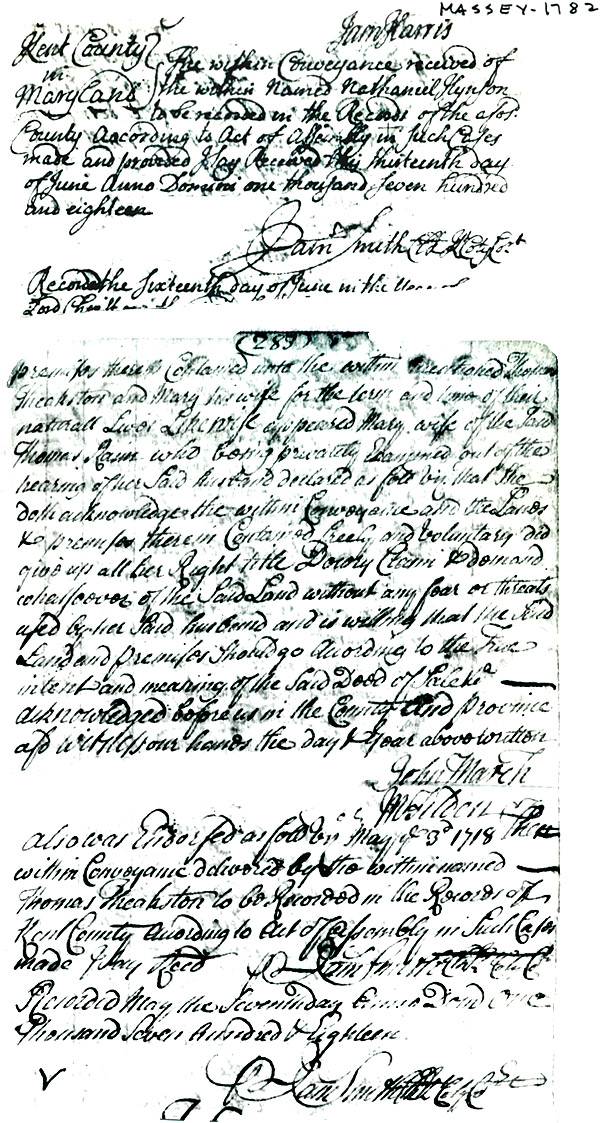 MASSEY-1782
Jam Harris
Kent County
in
Maryland
The within Conveyance received of
the within Named Nathaniel Hynson
to be recorded in the Records of the afos
County According to Act of Assembly in Such Cases
made and provided I Say Received this thirteenth day
of June Anno Domini one thousand Seven hundred
and eighteen
Jam Smith
Record the Sixteenth day of June in the
Lord
(283)
premises therein Contained unto the within mentioned Thomas
Theakston and Mary his wife for the term and time of their
naturall Lives Likewise appeared Mary wife of the Said
Thomas who being privately Examined out of the
hearing of her Said husband declared as foll viz that She
doth acknowledge the within Conveyance and the Lands
& premises therein Contained freely and voluntary did
give up all her Right title Dowry Claim & demand
whatsoever of the Said Land without any fear or threats
used by her Said husband and is willing that the Said
Land and premises Should go According to the True
intent and meaning of the Said Deed of Sale
Acknowledged before us in the County and Province
afd Witness our hands the day & year above written
John March
Also was Endorsed as foll viz May ye 3d 1718 The
within Conveyance delivered by the within named
Thomas Theakston to be Recorded in the Records of
Kent County According to Act of Assembly in Such Cases
made I Say Recd
Recorded May the Seventh day Anno Domi One
Thousand Seven Hundred & Eighteen
Jam Smith